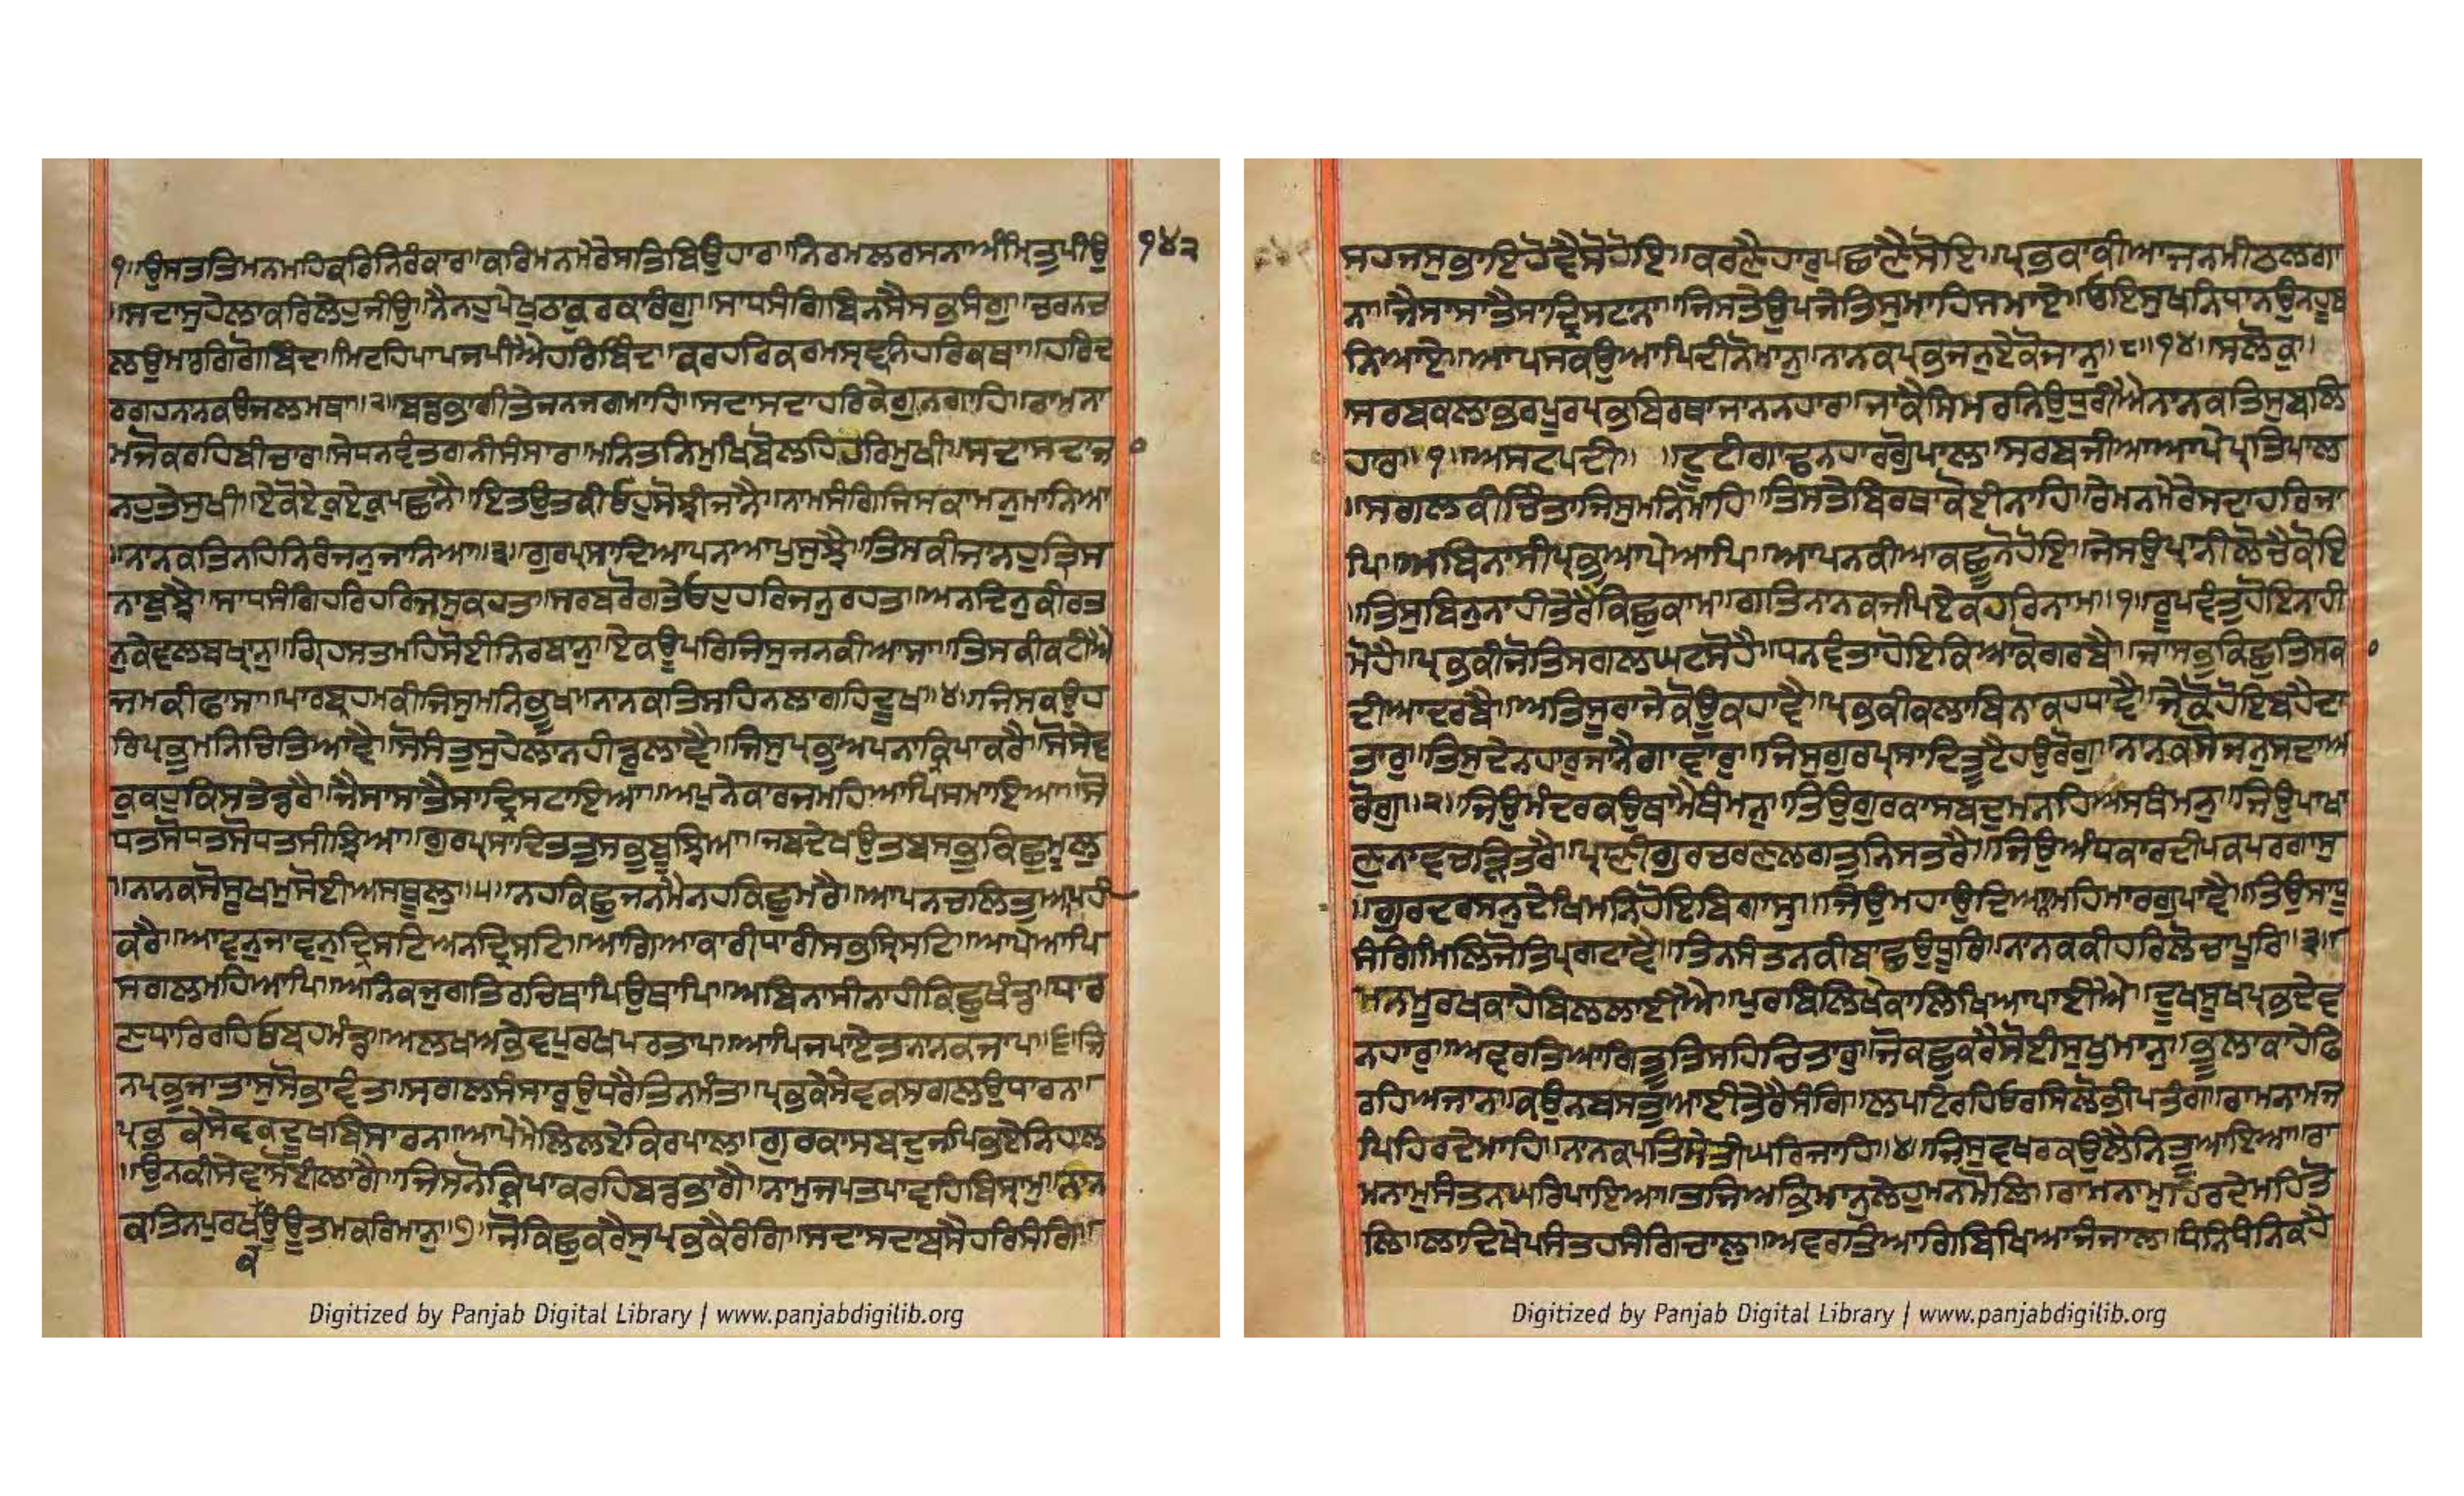 ੧॥ਉਸਤਤਿਮਨਮਹਿਕਰਿਨਿਰੰਕਾਰ॥ਕਰਿਮਨਮੇਰੇਸਤਿਬਿਉਹਾਰ॥ਨਿਰਮਲਰਸਨਾਅੰਮਿਤੁਪੀਉ ੧੪੨
॥ਸਦਾਸੁਹੇਲਾਕਰਿਲੇਹੁਜੀਉ॥ਨੈਨਹੁਪੇਖੁਠਾਕੁਰਕਾਰੰਗੁ॥ਸਾਧਸੰਗਿਬਿਨਸੈਸਭੁਸੰਗੁ॥ਚਰਨਚ
ਲਉਮਾਰਗਿਗੋਬਿੰਦ॥ਮਿਟਹਿਪਾਪਜਪੀਐਹਰਿਬਿੰਦ॥ਕਰਹਰਿਕਰਮਸ੍ਰਵਨਿਹਰਿਕਥਾ॥ਹਰਿਦ
ਰਗਹਨਾਨਕਊਜਲਮਥਾ॥੨॥ਬਡਭਾਗੀਤੇਜਨਜਗਮਾਹਿ॥ਸਦਾਸਦਾਹਰਿਕੇਗੁਨਗਾਹਿ॥ਰਾਮਨਾ
ਮਜੋਕਰਹਿਬੀਚਾਰ॥ਸੇਧਨਵੰਤਗਨੀਸੰਸਾਰ॥ਮਨਿਤਨਿਮੁਖਿਬੋਲਹਿਹਰਿਮੁਖੀ॥ਸਦਾਸਦਾਜ
ਨਹੁਤੇਸੁਖੀ॥ਏਕੋਏਕੁਏਕੁਪਛਾਨੈ॥ਇਤਉਤਕੀਓਹੁਸੋਝੀਜਾਨੈ॥ਨਾਮਸੰਗਿਜਿਸਕਾਮਨੁਮਾਨਿਆ
॥ਨਾਨਕਤਿਨਹਿਨਿਰੰਜਨੁਜਾਨਿਆ॥੩॥ਗੁਰਪ੍ਰਸਾਦਿਆਪਨਆਪੁਸੁਝੈ॥ਤਿਸਕੀਜਾਨਹੁਤ੍ਰਿਸ
ਨਾਬੁਝੈ॥ਸਾਧਸੰਗਿਹਰਿਹਰਿਜਸੁਕਹਤ॥ਸਰਬਰੋਗਤੇਓਹੁਹਰਿਜਨੁਰਹਤ॥ਅਨਦਿਨੁਕੀਰਤ
ਨੁਕੇਵਲਬਖ੍ਯਾਨੁ॥ਗ੍ਰਿਹਸਤਮਹਿਸੋਈਨਿਰਬਾਨੁ॥ਏਕਊਪਰਿਜਿਸੁਜਨਕੀਆਸਾ॥ਤਿਸਕੀਕਟੀਐ
ਜਮਕੀਫਾਸਾ॥ਪਾਰਬ੍ਰਹਮਕੀਜਿਸੁਮਨਿਭੂਖ॥ਨਾਨਕਤਿਸਹਿਨਲਾਗਹਿਦੂਖ॥੪॥ਜਿਸਕਉਹ
ਰਿਪ੍ਰਭੁਮਨਿਚਿਤਿਆਵੈ॥ਸੋਸੰਤੁਸੁਹੇਲਾਨਹੀਡੁਲਾਵੈ॥ਜਿਸੁਪ੍ਰਭੁਅਪਨਾਕ੍ਰਿਪਾਕਰੈ॥ਸੋਸੇਵ
ਕੁਕਹੁਕਿਸਤੇਡਰੈ॥ਜੈਸਾਸਾਤੈਸਾਦ੍ਰਿਸਟਾਇਆ॥ਅਪੁਨੇਕਾਰਜਮਹਿਆਪਿਸਮਾਇਆ॥ਸੋ
ਧਤਸੋਧਤਸੋਧਤਸੀਝਿਆ॥ਗੁਰਪ੍ਰਸਾਦਿਤਤੁਸਭੁਬੂਝਿਆ॥ਜਬਦੇਖਉਤਬਸਭੁਕਿਛੁਮੂਲੁ
॥ਨਾਨਕਸੋਸੂਖਮੁਸੋਈਅਸਥੂਲੁ॥੫॥ਨਹਕਿਛੁਜਨਮੈਨਹਕਿਛੁਮਰੈ॥ਆਪਨਚਲਿਤੁਆਪਹੀ
ਕਰੈ॥ਆਵਨੁਜਾਵਨੁਦ੍ਰਿਸਟਿਅਨਦ੍ਰਿਸਟਿ॥ਆਗਿਆਕਾਰੀਧਾਰੀਸਭੁਸ੍ਰਿਸਟਿ॥ਆਪੇਆਪਿ
ਸਗਲਮਹਿਆਪਿ॥ਅਨਿਕਜੁਗਤਿਰਚਿਥਾਪਿਉਥਾਪਿ॥ਅਬਿਨਾਸੀਨਾਹੀਕਿਛੁਖੰਡ॥ਧਾਰ
ਣਧਾਰਿਰਹਿਓਬ੍ਰਹਮੰਡ॥ਅਲਖਅਭੇਵਪੁਰਖਪਰਤਾਪ॥ਆਪਿਜਪਾਏਤਨਾਨਕਜਾਪ॥੬॥ਜਿ
ਨਪ੍ਰਭੁਜਾਤਾਸੁਸੋਭਾਵੰਤ॥ਸਗਲਸੰਸਾਰੁਉਧਰੈਤਿਨਮੰਤ॥ਪ੍ਰਭਕੇਸੇਵਕਸਗਲਉਧਾਰਨ॥
ਪ੍ਰਭਕੇਸੇਵਕਦੂਖਬਿਸਾਰਨ॥ਆਪੇਮੇਲਿਲਏਕਿਰਪਾਲ॥ਗੁਰਕਾਸਬਦੁਜਪਿਭਏਨਿਹਾਲ
॥ਉਨਕੀਸੇਵਾਸੋਈਲਾਗੈ॥ਜਿਸਨੋਕ੍ਰਿਪਾਕਰਹਿਬਡਭਾਗੈ॥ਨਾਮੁਜਪਤਪਾਵਹਿਬਿਸ੍ਰਾਮੁ॥ਨਾਨ
ਕਤਿਨਪੁਰਖਕਉਊਤਮਕਰਿਮਾਨੁ॥੭॥ਜੋਕਿਛੁਕਰੈਸੁਪ੍ਰਭਕੈਰੰਗਿ॥ਸਦਾਸਦਾਬਸੈਹਰਿਸੰਗਿ॥
ਸਹਜਸੁਭਾਇਹੋਵੈਸੋਹੋਇ॥ਕਰਣੈਹਾਰੁਪਛਾਣੈਸੋਇ॥ਪ੍ਰਭਕਾਕੀਆਜਨਮੀਠਲਗਾ
ਨਾ॥ਜੈਸਾਸਾਤੈਸਾਦ੍ਰਿਸਟਾਨਾ॥ਜਿਸਤੇਉਪਜੇਤਿਸੁਮਾਹਿਸਮਾਏ॥ਓਇਸੁਖਨਿਧਾਨਉਨਹੂਬ
ਨਿਆਏ॥ਆਪਸਕਉਆਪਿਦੀਨੋਮਾਨੁ॥ਨਾਨਕਪ੍ਰਭਜਨੁਏਕੋਜਾਨੁ॥੮॥੧੪॥ਸਲੋਕੁ॥
ਸਰਬਕਲਾਭਰਪੂਰਪ੍ਰਭਬਿਰਥਾਜਾਨਨਹਾਰ॥ਜਾਕੈਸਿਮਰਨਿਉਧਰੀਐਨਾਨਕਤਿਸੁਬਲਿ
ਹਾਰ॥੧॥ਅਸਟਪਦੀ॥ ॥ਟੂਟੀਗਾਢਨਹਾਰਗੋੁਪਾਲ॥ਸਰਬਜੀਆਆਪੇਪ੍ਰਤਿਪਾਲ
॥ਸਗਲਕੀਚਿੰਤਾਜਿਸੁਮਨਮਾਹਿ॥ਤਿਸਤੇਬਿਰਥਾਕੋਈਨਾਹਿ॥ਰੇਮਨਮੇਰੇਸਦਾਹਰਿਜਾ
ਪਿ॥ਅਬਿਨਾਸੀਪ੍ਰਭੁਆਪੇਆਪਿ॥ਆਪਨਕੀਆਕਛੂਨਹੋਇ॥ਜੇਸਉਪ੍ਰਾਨੀਲੋਚੈਕੋਇ
॥ਤਿਸੁਬਿਨੁਨਾਹੀਤੇਰੈਕਿਛੁਕਾਮ॥ਗਤਿਨਾਨਕਜਪਿਏਕਹਰਿਨਾਮ॥੧॥ਰੂਪਵੰਤੁਹੋਇਨਾਹੀ
ਮੋਹੈ॥ਪ੍ਰਭਕੀਜੋਤਿਸਗਲਘਟਸੋਹੈ॥ਧਨਵੰਤਾਹੋਇਕਿਆਕੋਗਰਬੈ॥ਜਾਸਭੁਕਿਛੁਤਿਸਕਾ
ਦੀਆਦਰਬੈ॥ਅਤਿਸੂਰਾਜੇਕੋਊਕਹਾਵੈ॥ਪ੍ਰਭਕੀਕਲਾਬਿਨਾਕਹਧਾਵੈ॥ਜੇਕੋਹੋਇਬਹੈਦਾ
ਤਾਰੁ॥ਤਿਸੁਦੇਨਹਾਰੁਜਾਨੈਗਾਵਾਰੁ॥ਜਿਸੁਗੁਰਪ੍ਰਸਾਦਿਤੂਟੈਹਉਰੋਗੁ॥ਨਾਨਕਸੋਜਨੁਸਦਾਅ
ਰੋਗੁ॥੨॥ਜਿਉਮੰਦਰਕਉਥਾਮੈਥੰਮਨੁ॥ਤਿਉਗੁਰਕਾਸਬਦੁਮਨਹਿਅਸਥੰਮਨੁ॥ਜਿਉਪਾਖਾ
ਣੁਨਾਵਚੜਿਤਰੈ॥ਪ੍ਰਾਣੀਗੁਰਚਰਣਲਗਤੁਨਿਸਤਰੈ॥ਜਿਉਅੰਧਕਾਰਦੀਪਕਪਰਗਾਸੁ
॥ਗੁਰਦਰਸਨੁਦੇਖਿਮਨਿਹੋਇਬਿਗਾਸੁ॥ਜਿਉਮਹਾਉਦਿਆਨਮਹਿਮਾਰਗੁਪਾਵੈ॥ਤਿਉਸਾਧੂ
ਸੰਗਿਮਿਲਿਜੋਤਿਪ੍ਰਗਟਾਵੈ॥ਤਿਨਸੰਤਨਕੀਬਾਛਉਧੂਰਿ॥ਨਾਨਕਕੀਹਰਿਲੋਚਾਪੂਰਿ॥੩॥
ਮਨਮੂਰਖਕਾਹੇਬਿਲਲਾਈਐ॥ਪੁਰਬਲਿਖੇਕਾਲਿਖਿਆਪਾਈਐ॥ਦੂਖਸੂਖਪ੍ਰਭਦੇਵ
ਨਹਾਰੁ॥ਅਵਰਤਿਆਗਿਤੂਤਿਸਹਿਚਿਤਾਰੁ॥ਜੋਕਛੁਕਰੈਸੋਈਸੁਖੁਮਾਨੁ॥ਭੂਲਾਕਾਹੇਫਿ
ਰਹਿਅਜਾਨ॥ਕਉਨਬਸਤੁਆਈਤੇਰੈਸੰਗਿ॥ਲਪਟਿਰਹਿਓਰਸਿਲੋਭੀਪਤੰਗ॥ਰਾਮਨਾਮਜ
ਪਿਹਿਰਦੇਮਾਹਿ॥ਨਾਨਕਪਤਿਸੇਤੀਘਰਿਜਾਹਿ॥੪॥ਜਿਸੁਵਖਰਕਉਲੈਨਿਤੂਆਇਆ॥ਰਾ
ਮਨਾਮੁਸੰਤਨਘਰਿਪਾਇਆ॥ਤਜਿਅਭਿਮਾਨੁਲੇਹੁਮਨਮੋਲਿ॥ਰਾਮਨਾਮੁਹਿਰਦੇਮਹਿਤੋ
ਲਿ॥ਲਾਦਿਖੇਪਸੰਤਹਸੰਗਿਚਾਲੁ॥ਅਵਰਤਿਆਗਿਬਿਖਿਆਜੰਜਾਲ॥ਧੰਨਿਧੰਨਿਕਹੈ
Digitized by Panjab Digital Library | www.panjabdigilib.org
Digitized by Panjab Digital Library | www.panjabdigilib.org